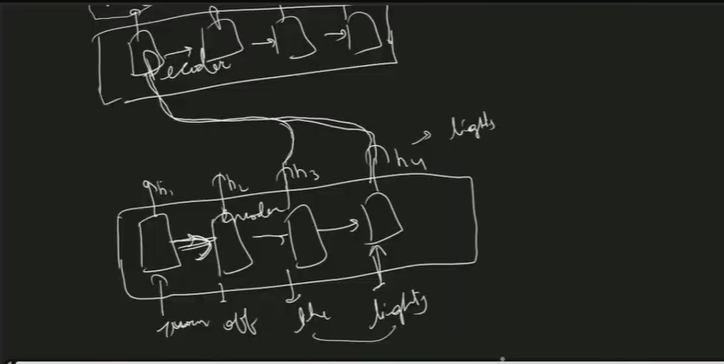 Decoder
lights
h1 h2 h3 h4
Encoder
turn off the lights